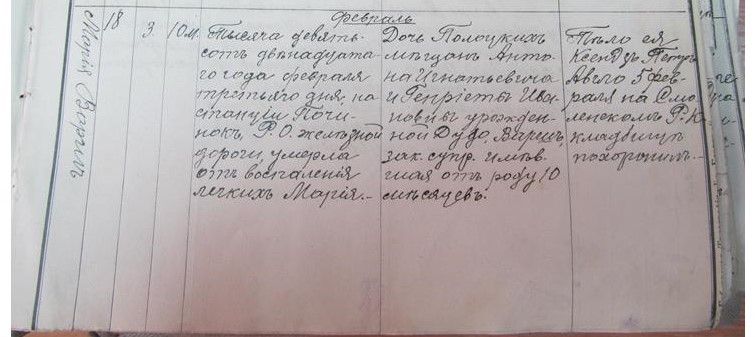 Февраль
Марія Варпъ
18
3.
10 м.
Тысяча девять-
сотъ двѣнадцата-
го года февраля
третьяго дня, на
станціи Почи-
нокъ Р. О. желѣзной
дороги, умерла
отъ воспаленія
легкихъ Марія.–
Дочь Полоцкихъ
мѣщанъ Анто-
на Игнатьевича
и Генріеты Ива-
новны урожден-
ной Дудо,
зак. супр. имѣв-
шая отъ роду 10
мѣсяцевъ.
Тѣло ея
Ксендзъ Петръ
Авгло 5 фев-
раля на Смо-
ленскомъ Р. К.
кладбищѣ
похоронилъ.–